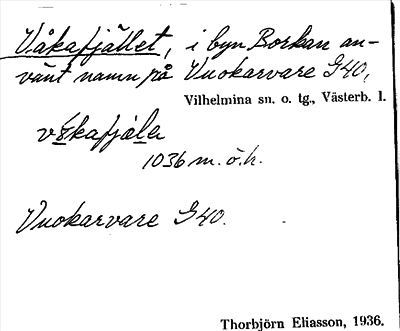 Våkafjället, i byn Borkan an-
vänt namn på Vuokarvare G40,
Vilhelmina sn. o. tg., Västerb. l.
1036 m. ö. h.
Vuokarvare G40.
Thorbjörn Eliasson, 1936.